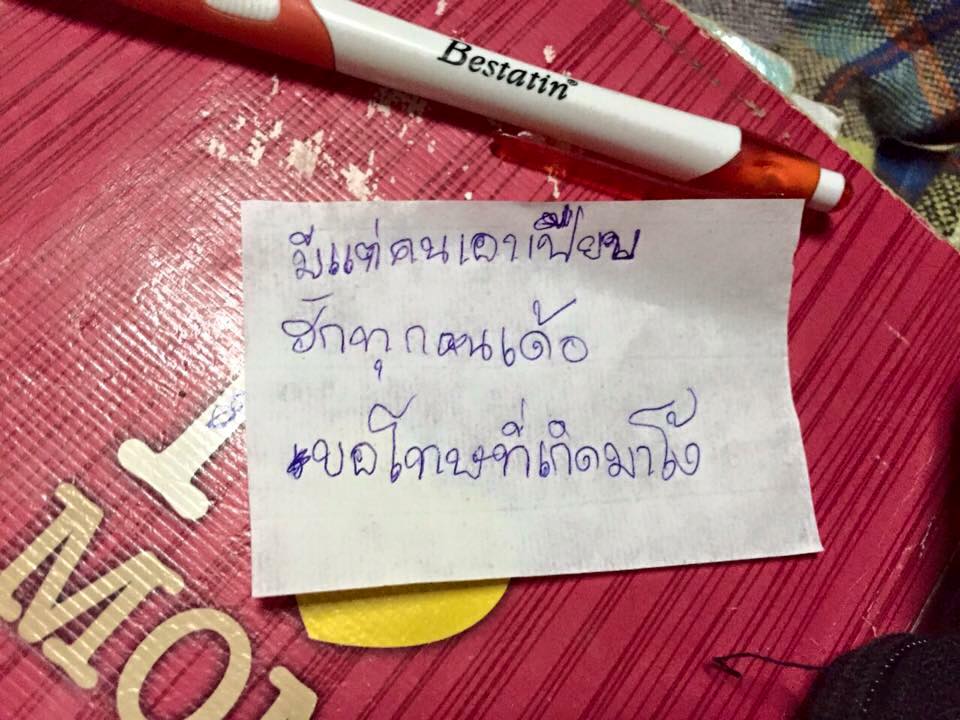 Bestatin
มีแต่คนเอาเปียบ
ฮักทุกคนเด้อ
ขอโทษที่เกิดมาโง้
I
MO